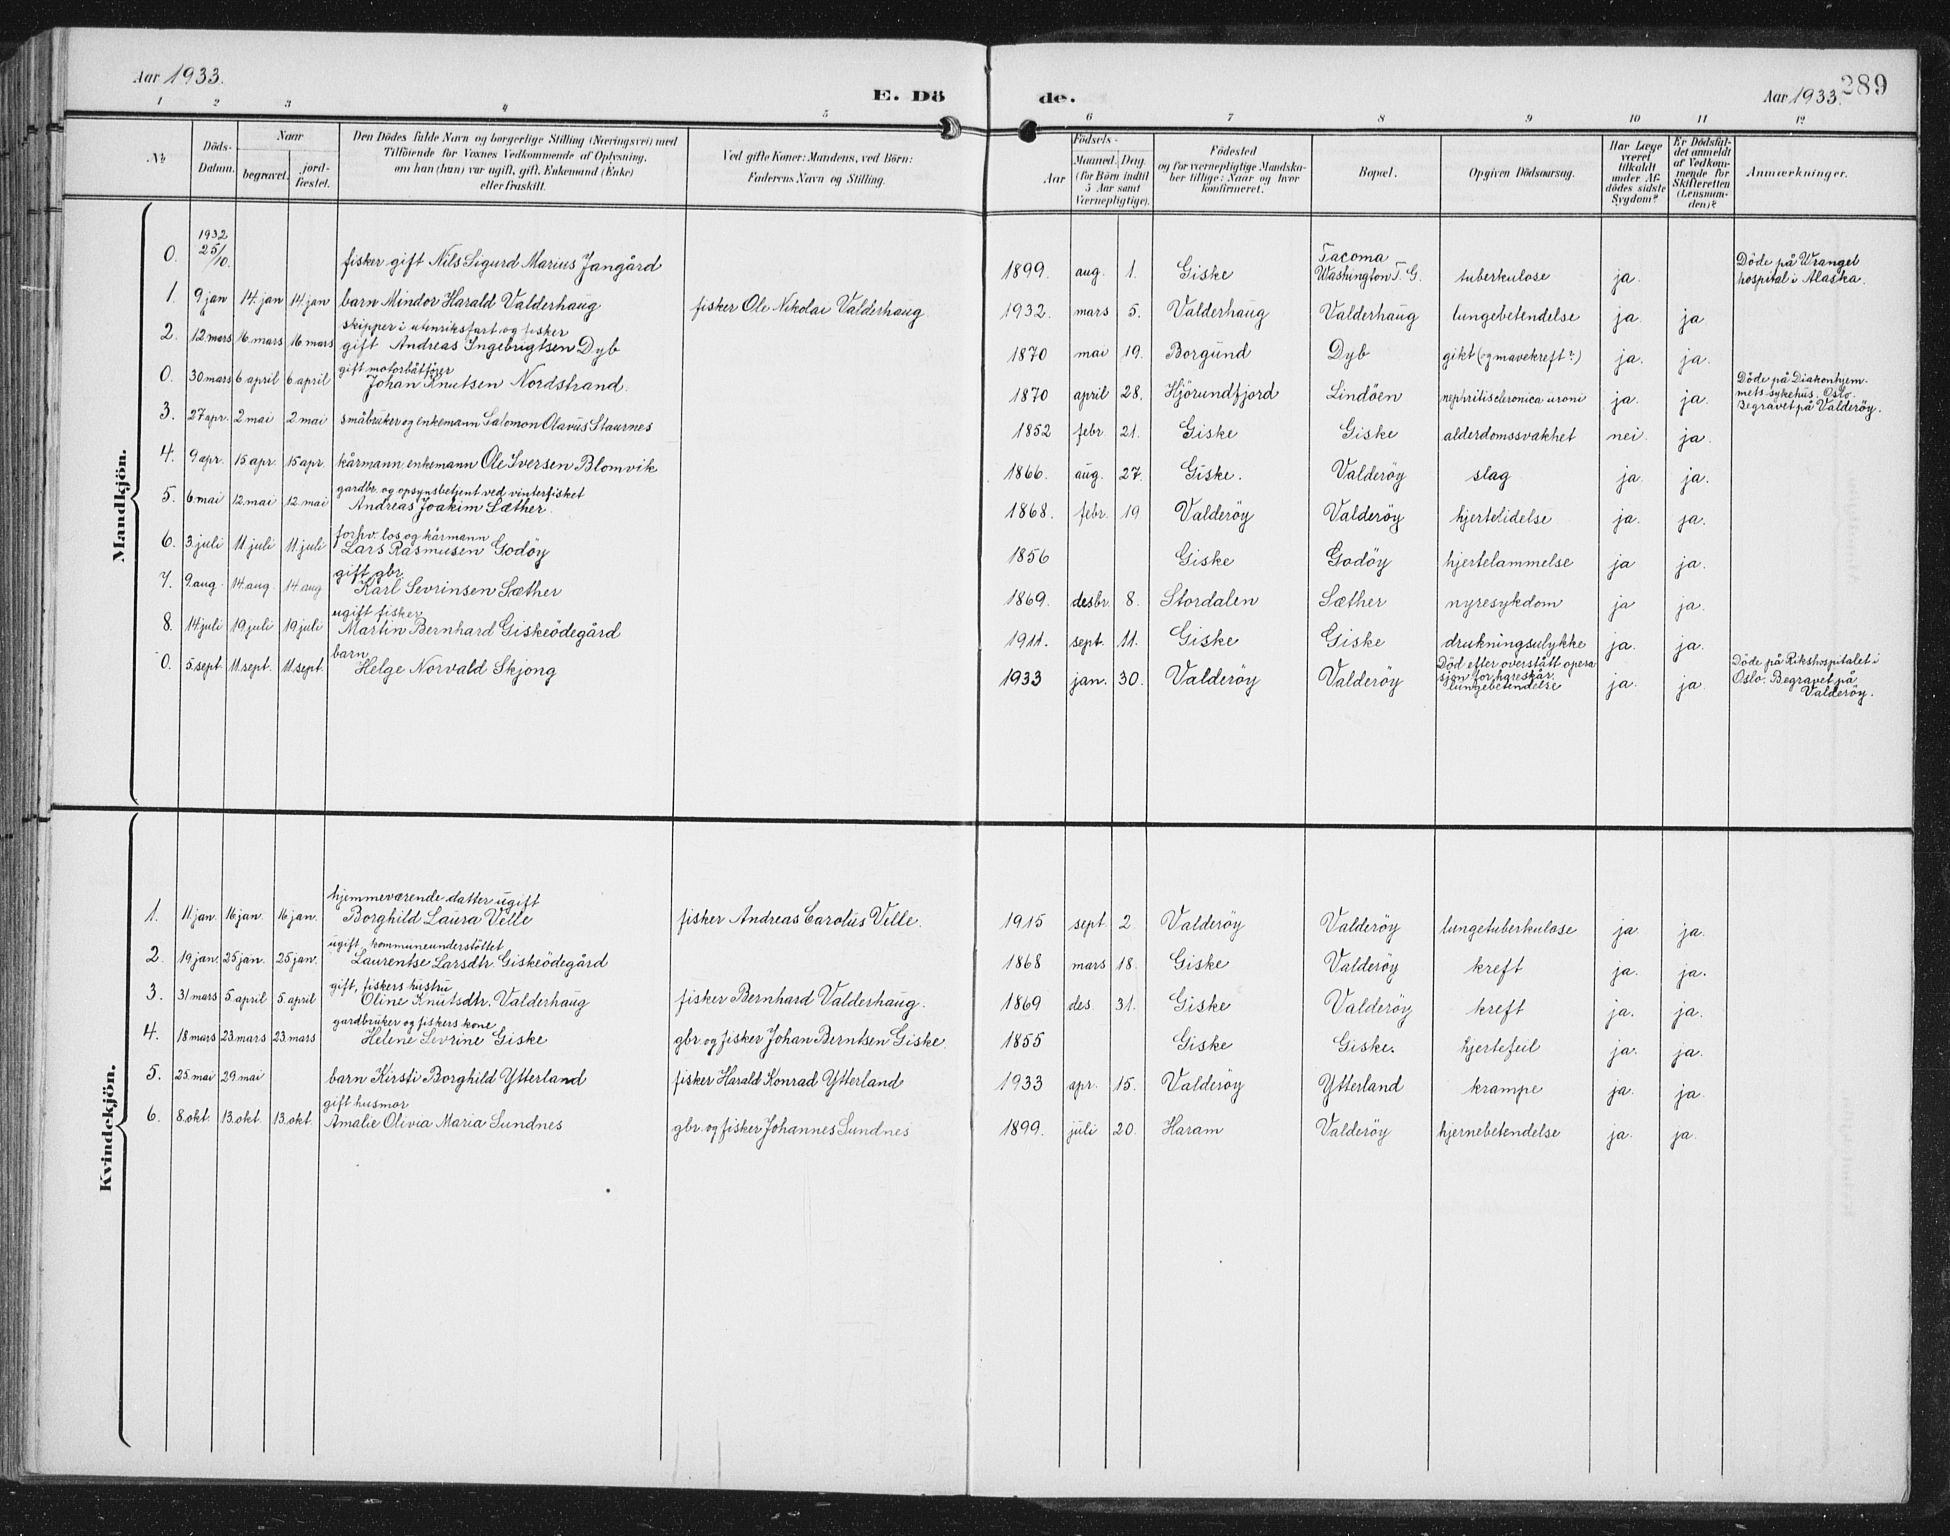 Aar 1933.
E. Dö de.
Aar 1933.
289
1 2 3 4 5 6 7 8 9 10 11 12
No
Döds-Datum.
Naar begravet. jordfæstet.
Den Dödes fulde Navn og borgerlige Stilling (Næringsvei) med Tilföiende for Voxnes Vedkommende af Oplysning, om han (hun) var ugift, gift, Enkemand (Enke) eller fraskilt.
Ved gifte Koner: Mandens, ved Börn: Faderens Navn og Stilling.
Födsels-
Aar
Maaned. Dag. (for Börn indtil 5 Aar samt Værnepligtige).
Födested og for værnepligtige Mandskaber tillige: Naar og hvor konfirmeret.
Bopæl.
Opgiven Dödsaarsag.
Har Læge været tilkaldt under Afdödes sidste Sygdom?
Er Dödsfaldet anmeldt af Vedkommende for Skifteretten (Lensmanden)?
Anmærkninger.
Mandkjön.
0. 1932 25/10. fisker gift Nils Sigurd Marius Jangård 1899. aug. 1. Giske Tacoma Washington T. G. tuberkulose ja. Döde på Wrangel hospital i Alaska.
1. 9 jan 14. jan 14 jan barn Mindor Harald Valderhaug fisker Ole Nikolai Valderhaug 1932. mars 5. Valderhaug Valderhaug lungebetendelse ja. ja
2. 12 mars 16 mars 16 mars skipper i utenriksfart og fisker gift Andreas Ingebrigtsen Dyb 1870 mai 19. Borgund Dyb gikt (og mavekreft?) ja. ja.
0. 30 mars 6 april 6 april gift motorbåtförer Johan Knutsen Nordstrand. 1870 april 28. Hjörundfjord Lindöen nephritis cleronica uroni ja. ja. Döde på Diakonhjemmets sykehus. Oslo. Begravet på Valderöy.
3. 27 apr. 2 mai 2 mai småbruker og enkemann Salomon Olavus Staurnes 1852 febr 21. Giske Giske alderdomssvakhet nei. ja.
4. 9 apr. 15 apr. 15 apr. kårmann, enkemann Ole Iversen Blomvik 1866. aug. 27. Giske. Valderöy slag ja. ja.
5. 6 mai 12 mai 12. mai gardbr. og opsynsbetjent ved vinterfisket Andreas Joakim Sæther. 1868. febr. 19 Valderöy Valderöy hjertelidelse ja. ja.
6. 3. juli 11. juli 11. juli forhv. los og kårmann Lars Rasmusen Godöy 1856 Giske Godöy hjertelammelse ja ja.
7. 9. aug. 14. aug. 14 aug gift gbr. Karl Sevrinsen Sæther 1869. desbr. 8. Stordalen Sæther nyresykdom ja ja.
8. 14 juli 19 juli 19 juli ugift fisker Martin Bernhard Giskeödegård 1911. sept. 11. Giske Giske drukningsulykke ja. ja.
0. 5. sept. 11. sept. 11. sept. barn Helge Norvald Skjong 1933 jan. 30. Valderöy Valderöy Död efter overstått operasjon for hareskår. lungebetendelse ja. ja. Döde på Rikshospitalet i Oslo. Begravet på Valderöy.
Kvindekjön.
1. 11. jan. 16 jan. 16 jan. hjemmeværende datter ugift Borghild Laura Velle fisker Andreas Carolus Velle. 1915 sept 2. Valderöy Valderöy lungetuberkulose ja ja.
2. 19 jan. 25 jan. 25 jan. ugift, kommuneunderstöttet Laurentse Larsdtr. Giskeödegård 1868 mars 18. Giske Valderöy kreft ja. ja.
3. 31 mars 5. april 5. april gift, fiskers hustru Oline Knutsdtr. Valderhaug fisker Bernhard Valderhaug. 1869 des. 31. Giske Valderöy kreft ja. ja.
4. 18 mars 23. mars 23. mars gardbruker og fiskers kone Helene Sevrine Giske gbr. og fisker Johan Berntsen Giske. 1855 Giske Giske. hjertefeil ja. ja.
5. 25. mai 29. mai barn Kirsti Borghild Ytterland fisker Harald Konrad Ytterland 1933 apr. 15. Valderöy Ytterland krampe ja. ja.
6. 8. okt. 13. okt 13. okt. gift husmor Amalie Olivia Maria Sundnes gbr. og fisker Johannes Sundnes 1899. juli 20. Haram Valderöy hjernebetendelse ja. ja.